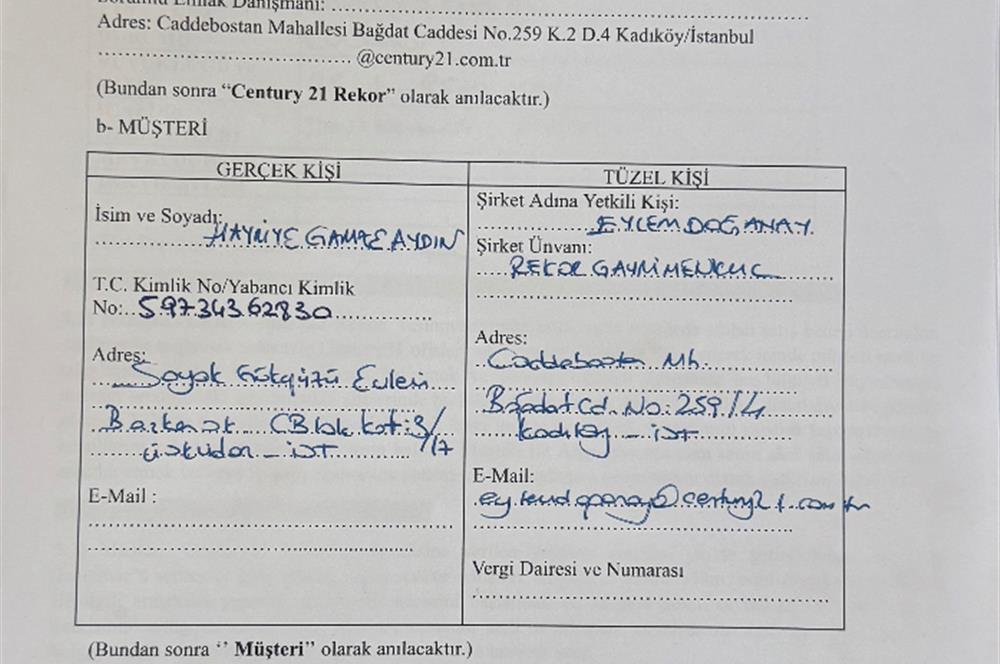 Sorumlu Emlak Danışmanı: ........................................
Adres: Caddebostan Mahallesi Bağdat Caddesi No.259 K.2 D.4 Kadıköy/İstanbul
........................................ @century21.com.tr
(Bundan sonra “Century 21 Rekor” olarak anılacaktır.)
b- MÜŞTERİ
GERÇEK KİŞİ
İsim ve Soyadı:
HAYRİYE GAMZE AYDIN
T.C. Kimlik No/Yabancı Kimlik
No: 59734362830
Adres:
Soyak Gökyüzü Evleri
C Blok kat:3/17
üsküdar - İST
E-Mail :
TÜZEL KİŞİ
Şirket Adına Yetkili Kişi:
EYLEM DOĞANAY
Şirket Ünvanı:
REKOR GAYRİMENKUL
Adres:
Caddebostan Mh
Bağdat Cd. No: 259/4
Kadıköy - İST
E-Mail:
Vergi Dairesi ve Numarası
(Bundan sonra ‘’ Müşteri” olarak anılacaktır.)